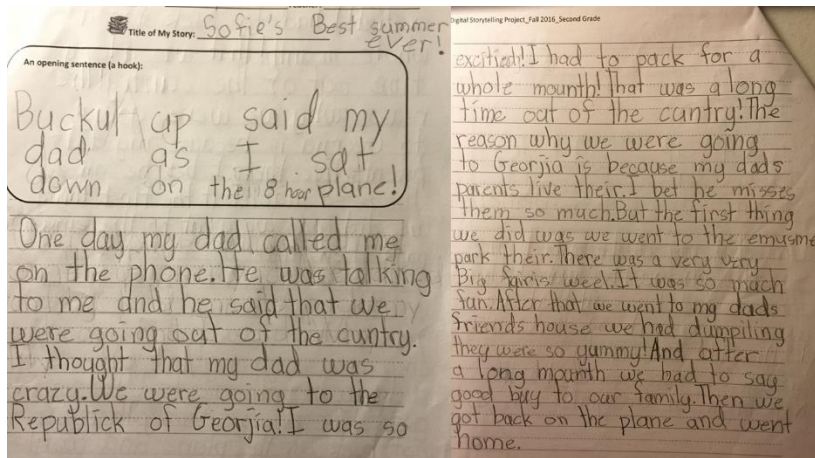 Title of My Story: Sofie's Best summer
ever!
An opening sentence (a hook):
Buckul up said my
dad as I sat
down on the 8 hour plane!
One day my dad called me
on the phone.He was talking
to me and he said that we
were going out of the cuntry.
I thought that my dad was
crazy.We were going to the
Republick of Georjia!I was so
Digital Storytelling Project_Fall 2016_Second Grade
excitied!I had to pack for a
whole mounth!That was a long
time out of the cuntry!The
reason why we were going
to Georjia is because my dads
parents live their.I bet he misses
them so much.But the first thing
we did was we went to the emusme
park their.There was a very very
Big fairis weel.It was so much
fun.After that we went to my dads
friends house we had dumpiling
they were so yummy!And after
a long mounth we had to say
good buy to our family.Then we
got back on the plane and went
home.